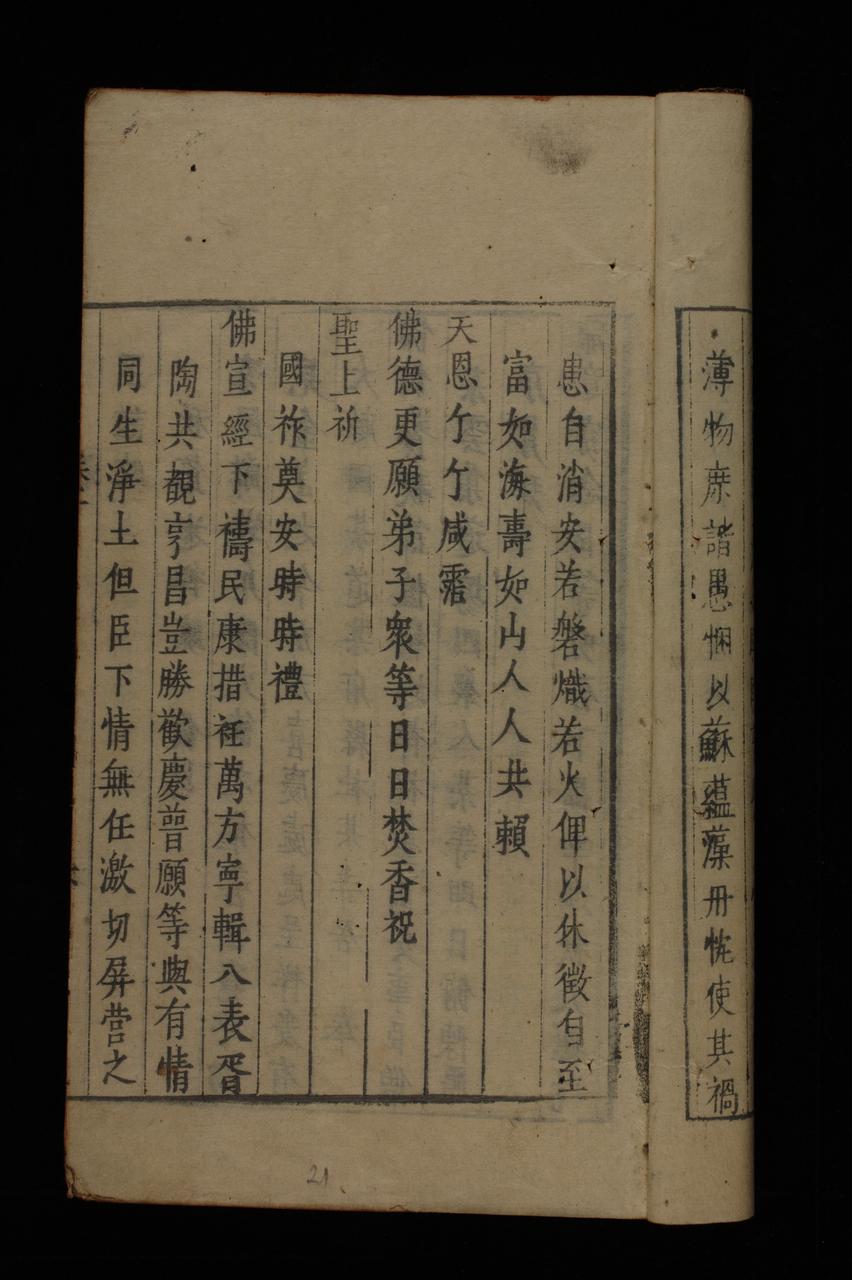 薄物庶諧愚悃以蘇蘊藻冊忱使其禍
患自消安若磐熾若火俾以休徵自至
富如海壽如山人人共賴
天恩亇亇咸霑
佛德更願弟子衆等日日焚香祝
聖上祈
國祚奠安時時禮
佛宣經下禱民康措衽萬方寧輯八表胥
陶共覩亨昌豈勝歡慶普願等與有情
同生淨土但臣下情無任激切屏营之
21